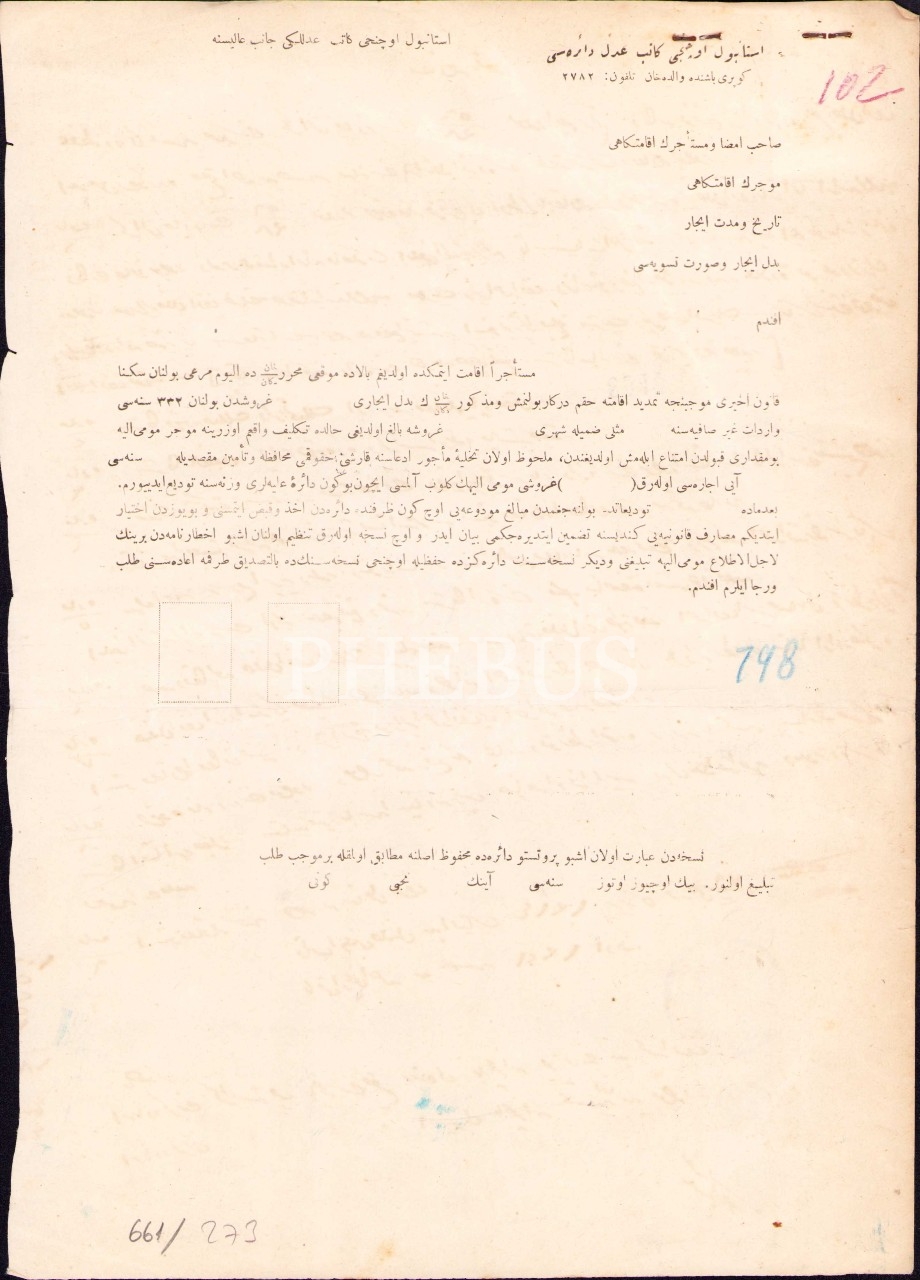 استانبول اوچنجی كاتب عدللكی جانب عالیسنه
استانبول اوچنجی كاتب عدل دائره‌سی
كوپری باشنده والده‌خان تلفون: ٢٧٨٢
102
صاحب امضا ومستأجرك اقامتكاهی
موجرك اقامتكاهی
تاریخ ومدت ایجار
بدل ایجار وصورت تسویه‌سی
افندم
مستأجراً اقامت ایتمكده اولدیغم بالاده موقعی محرر ده الیوم مرعی بولنان سكنا
قانون اخیری موجبنجه تمدید اقامته حقم دركار بولنمش ومذكور ك بدل ایجاری غروشدن بولنان ٣٣٢ سنه‌سی
واردات غیر صافیه‌سنه مثلی ضمیله شهری غروشه بالغ اولدیغی حالده تكلیف واقعم اوزرینه موجر مومی‌الیه
بومقداری قبولدن امتناع ایله‌مش اولدیغندن، ملحوظ اولان تخلیهٔ مأجور ادعاسنه قارشی حقوقمی محافظه وتأمین مقصدیله سنه‌سی
آیی اجاره‌سی اوله‌رق( )غروشی مومی الیهك كلوب آلمسی ایچون بوكون دائرهٔ عایه‌لری وزنه‌سنه تودیع ایدییورم.
بعدماده تودیعاتده بوانه‌جغمدن مبالغ مودوعه‌یی اوچ كون ظرفنده دائره‌دن اخذ وقبض ایتمسنی و بویوزدن اختیار
ایتدیكم مصارف قانونیه‌یی كندیسنه تضمین ایتدیره‌جكمی بیان ایدر و اوچ نسخه اوله‌رق تنظیم اولنان اشبو اخطارنامه‌دن برینك
لاجل‌الاطلاع مومی‌الیهه تبلیغنی ودیكر نسخه‌سنك دائره‌كزده حفظیله اوچنجی نسخه‌سنك‌ده بالتصدیق طرفمه اعاده‌سنی طلب
ورجا ایلرم افندم.
PHEBUS
798
نسخه‌دن عبارت اولان اشبو پروتستو دائره‌ده محفوظ اصلنه مطابق اولمقله بر موجب طلب
تبلیغ اولنور. بیك اوچیوز اوتوز سنه‌سی آینك نجی كونی
661/ 273